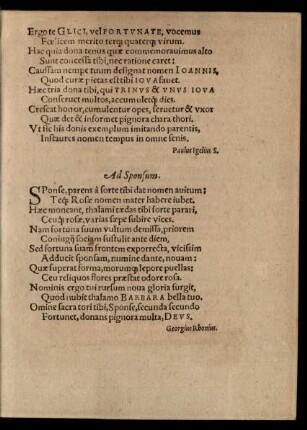 Ergo te GLICI, vel FORTVNATE, vocemus
Fœlicem merito terq́ quaterq́ virum.
Hac quia dona tenus quæ commemorauimus alto
Sunt concessa tibi, nec ratione caret:
Caussam nempe tuum designat nomen IOANNIS,
Quod curæ pietas est tibi IOVA fauet.
Hæc tria dona tibi, qui TRINVS & VNVS IOVA
Conseruet multos, accumuletq́ dies.
Crescat honor, cumulentur opes, seruetur & vxor
Quæ det & informet pignora chara thori.
Vt sic his donis exemplum imitando parentis,
Instaures nomen tempus in omne senis.
Paulus Igelius S.
Ad Sponsum.
SPonse, parens à sorte tibi dat nomen auitum:
Teq́ Rosæ nomen mater habere iubet.
Hæc moneant, thalami tædas tibi forte parari,
Ceu q́ rosæ, varias sæpe subire vices.
Nam fortuna suum vultum demissa, priorem
Coniugij sociam sustulit ante diem,
Sed fortuna suam frontem exporrecta, vicissim
Adducit sponsam, numine dante, nouam:
Quæ superat forma, morumq́ lepore puellas:
Ceu reliquos flores præstat odore rosa.
Nominis ergo tui rursum noua gloria surgit,
Quod nubit thalamo BARBARA bella tuo.
Omine sacra tori tibi, Sponse, secunda secundo
Fortunet, donans pignora multa, DEVS.
Georgius Rhonius.